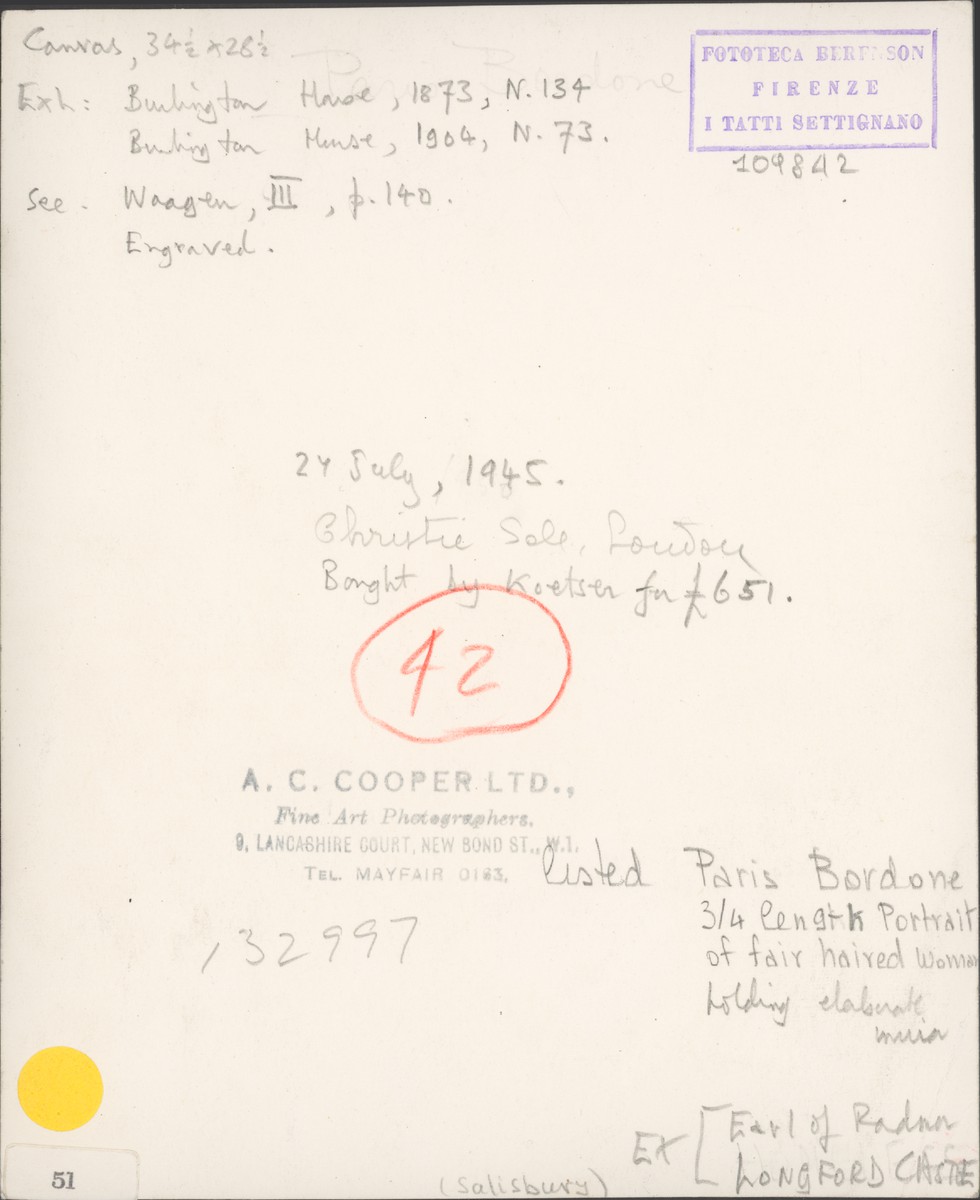 Canvas, 34½ x 28½
Paris Bordone
Exh: Burlington House, 1873, N. 134
Burlington House, 1904, N. 73.
See. Waagen, III, p. 140.
Engraved.
FOTOTECA BERENSON
FIRENZE
I TATTI SETTIGNANO
109842
24 July, 1945.
Christie Sale, London
Bought by Koetser for £651.
42
A. C. COOPER LTD.,
Fine Art Photographers,
9, LANCASHIRE COURT, NEW BOND ST., W.1.
TEL. MAYFAIR 0163.
132997
listed Paris Bordone
3/4 length Portrait
of fair haired woman
holding elaborate
Ex [ Earl of Radnor
LONGFORD CASTE
(Salisbury)
51